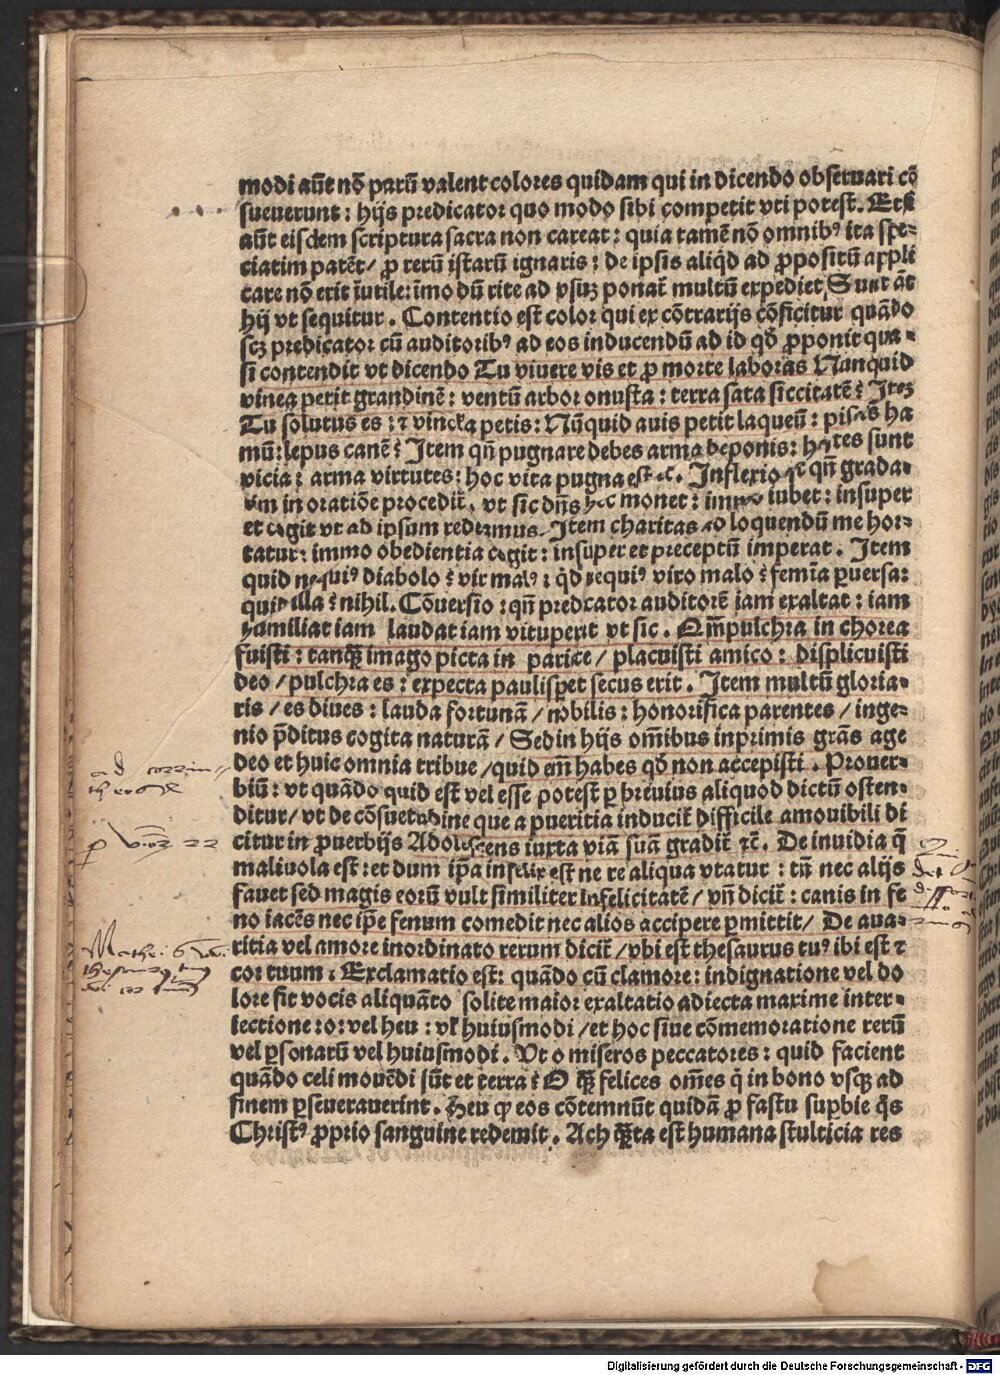 modi aūt nō parū valent colores quidam qui in dicendo obseruari cō
sueuerunt : hijs predicator quo modo sibi competit vti potest. Etsi
aūt eisdem scriptura sacra non careat : quia tamē nō omnibꝰ ita spe⸗
ciatim patēt / ꝓ rerū istarū ignaris : de ipsis aliqd̄ ad ꝓpositū appli
care nō erit īutile: īmo dū rite ad vsuꝫ ponat̄ multū expediet, Sunt āt
hij vt sequitur . Contentio est color qui ex cōtrarijs cōficitur quādo
scꝫ predicator cū auditoribꝰ ad eos inducendū ad id qd̄ ꝓponit qua ⸗
si contendit vt dicendo Tu viuere vis et ꝓ morte laboras Nunquid
vinea petit grandinē : ventū arbor onusta : terra sata siccitatē ? Iteꝫ
Tu solutus es : ⁊ vincla petis : Nūquid auis petit laqueū : piscis ha
mū: lepus canē ? Item qn̄ pugnare debes arma deponis : hostes sunt
vicia : arma virtutes : hoc vita pugna est ⁊c. Inflexio qn̄ grada⸗
tim in oratiōe procedit̄ . vt sic dn̄s hec monet : immo iubet : insuper
et cogit vt ad ipsum redeamus. Item charitas ad loquendū me hor⸗
tatur: immo obedientia cogit : insuper et preceptū imperat . Item
quid nequiꝰ diabolo ? vir malꝰ : qd̄ nequiꝰ viro malo ? femīa puersa:
quid illa ? nihil. Cōuersio : qn̄ predicator auditorē iam exaltat : iam
humiliat iam laudat iam vituperat vt sic . Qm̄ pulchra in chorea
fuisti : tanqꝫ̄ imago picta in pariete / placuisti amico : displicuisti
deo / pulchra es : expecta paulisꝑ et secus erit . Item multū gloria⸗
ris / es diues : lauda fortunā / nobilis : honorifica parentes / inge⸗
nio p̄ditus cogita naturā / Sed in hijs om̄ibus inprimis grās age
deo et huic omnia tribue / quid em̄ habes qd̄ non accepisti . Prouer⸗
biū : vt quādo quid est vel esse potest ꝑ breuius aliquod dictū osten⸗
ditur / vt de cōsuetudine que a pueritia inducit̄ difficile amouibili di
citur in ꝓuerbijs Adolescens iuxta viā suā gradit̄ ⁊c̄. De inuidia q̄
maliuola est : et dum ip̄a infelix est ne re aliqua vtatur : tn̄ nec alijs
fauet sed magis eorū vult similiter infelicitatē / vn̄ dicit̄ : canis in fe
no iacēs nec ip̄e fenum comedit nec alios accipere ꝑmittit / De aua⸗
ritia vel amore inordinato rerum dicit̄ / vbi est thesaurus tuꝰ ibi est ⁊
cor tuum . Exclamatio est: quādo cū clamore: indignatione vel do
lore fit vocis aliquāto solite maior exaltatio adiecta maxime inter⸗
iectione : o : vel heu : vl̄ huiusmodi / et hoc siue cōmemoratione rerū
vel ꝑsonarū vel huiusmodi . Vt o miseros peccatores : quid facient
quādo celi mouēdi sūt et terra ? O qꝫ̄ felices om̄es q̄ in bono vsqꝫ ad
finem ꝑseuerauerint . Heu ꝙ eos cōtemnūt quidā ꝓ fastu suꝑbie q̄s
Christꝰ ꝓprio sanguine redemit . Ach qꝫ̄ta est humana stulticia res
ꝑ 22
Mathei 6
Digitalisierung gefördert durch die Deutsche Forschungsgemeinschaft - DFG